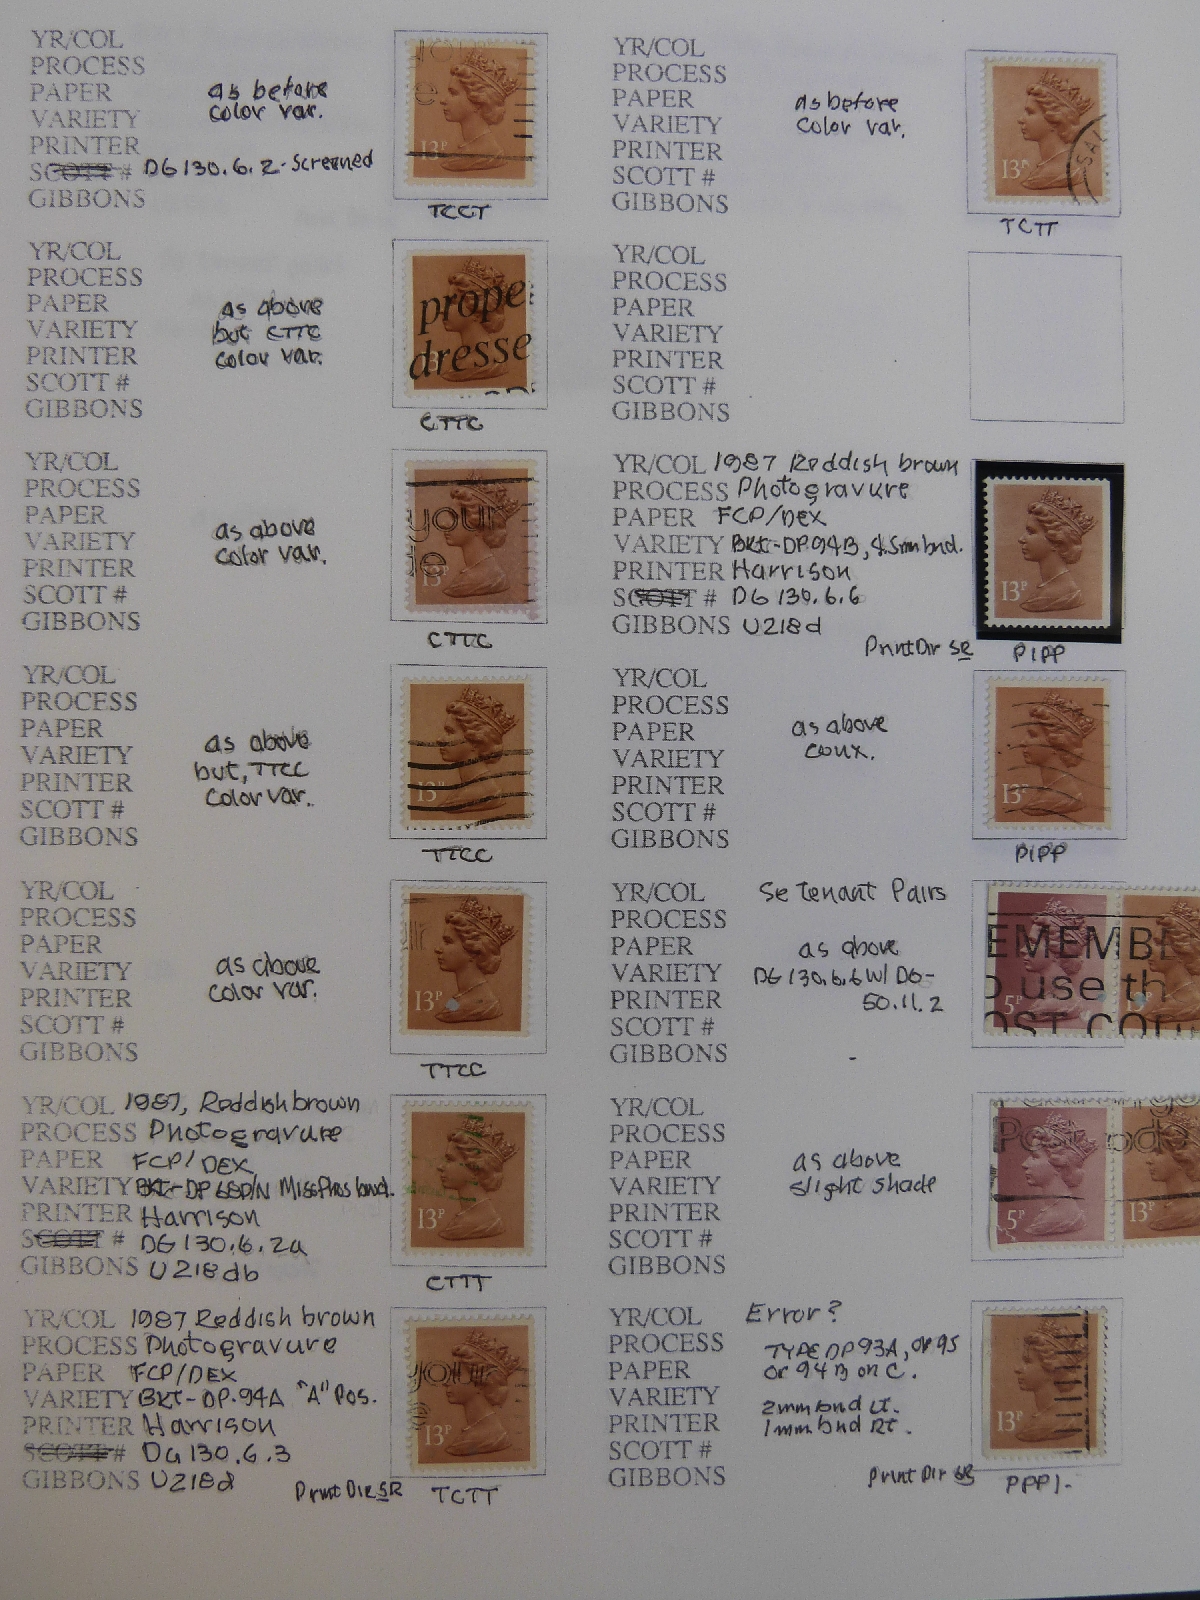 YR/COL
PROCESS
PAPER as before
VARIETY color var.
PRINTER
SCOTT # DG 130.6.2 - Screened
GIBBONS
13P
TCCT
YR/COL
PROCESS
PAPER as above
VARIETY but CTTC
PRINTER color var.
SCOTT #
GIBBONS
prope
dresse
CTTC
YR/COL
PROCESS
PAPER as above
VARIETY color var.
PRINTER
SCOTT #
GIBBONS
your
te
13P
CTTC
YR/COL
PROCESS
PAPER as above
VARIETY but, TTCC
PRINTER color var.
SCOTT #
GIBBONS
13P
TTCC
YR/COL
PROCESS
PAPER as above
VARIETY color var.
PRINTER
SCOTT #
GIBBONS
13P
TTCC
YR/COL 1987, Reddish brown
PROCESS Photogravure
PAPER FCP/DEX
VARIETY BKT-DP 68D/N Miss Phos bnd.
PRINTER Harrison
SCOTT # DG 130.6.2a
GIBBONS U218db
13P
CTTT
YR/COL 1987 Reddish brown
PROCESS Photogravure
PAPER FCP/DEX
VARIETY BKT-DP.94A "A" Pos.
PRINTER Harrison
SCOTT # DG 130.6.3
GIBBONS U218d
Print Dir SR
13P
TCTT
YR/COL
PROCESS
PAPER as before
VARIETY color var.
PRINTER
SCOTT #
GIBBONS
13P
TCTT
YR/COL
PROCESS
PAPER
VARIETY
PRINTER
SCOTT #
GIBBONS
YR/COL 1987 Reddish brown
PROCESS Photogravure
PAPER FCP/DEX
VARIETY BKT-DP.94B, 4.5mm bnd.
PRINTER Harrison
SCOTT # DG 130.6.6
GIBBONS U218d
Print Dir SR
13P
P1PP
YR/COL
PROCESS
PAPER as above
VARIETY coux.
PRINTER
SCOTT #
GIBBONS
13P
P1PP
YR/COL Se tenant Pairs
PROCESS
PAPER as above
VARIETY DG 130.6.6 W/ DG-
PRINTER 50.11.2
SCOTT #
GIBBONS
EMEMBE
o use th
OST COD
5P
YR/COL
PROCESS
PAPER as above
VARIETY slight shade
PRINTER
SCOTT #
GIBBONS
5P 13P
YR/COL Error?
PROCESS TYPE DP 93A, or 95
PAPER or 94B on C.
VARIETY 2mm bnd Lt.
PRINTER 1mm bnd Rt.
SCOTT #
GIBBONS
Print Dir SR
13P
PPP1-